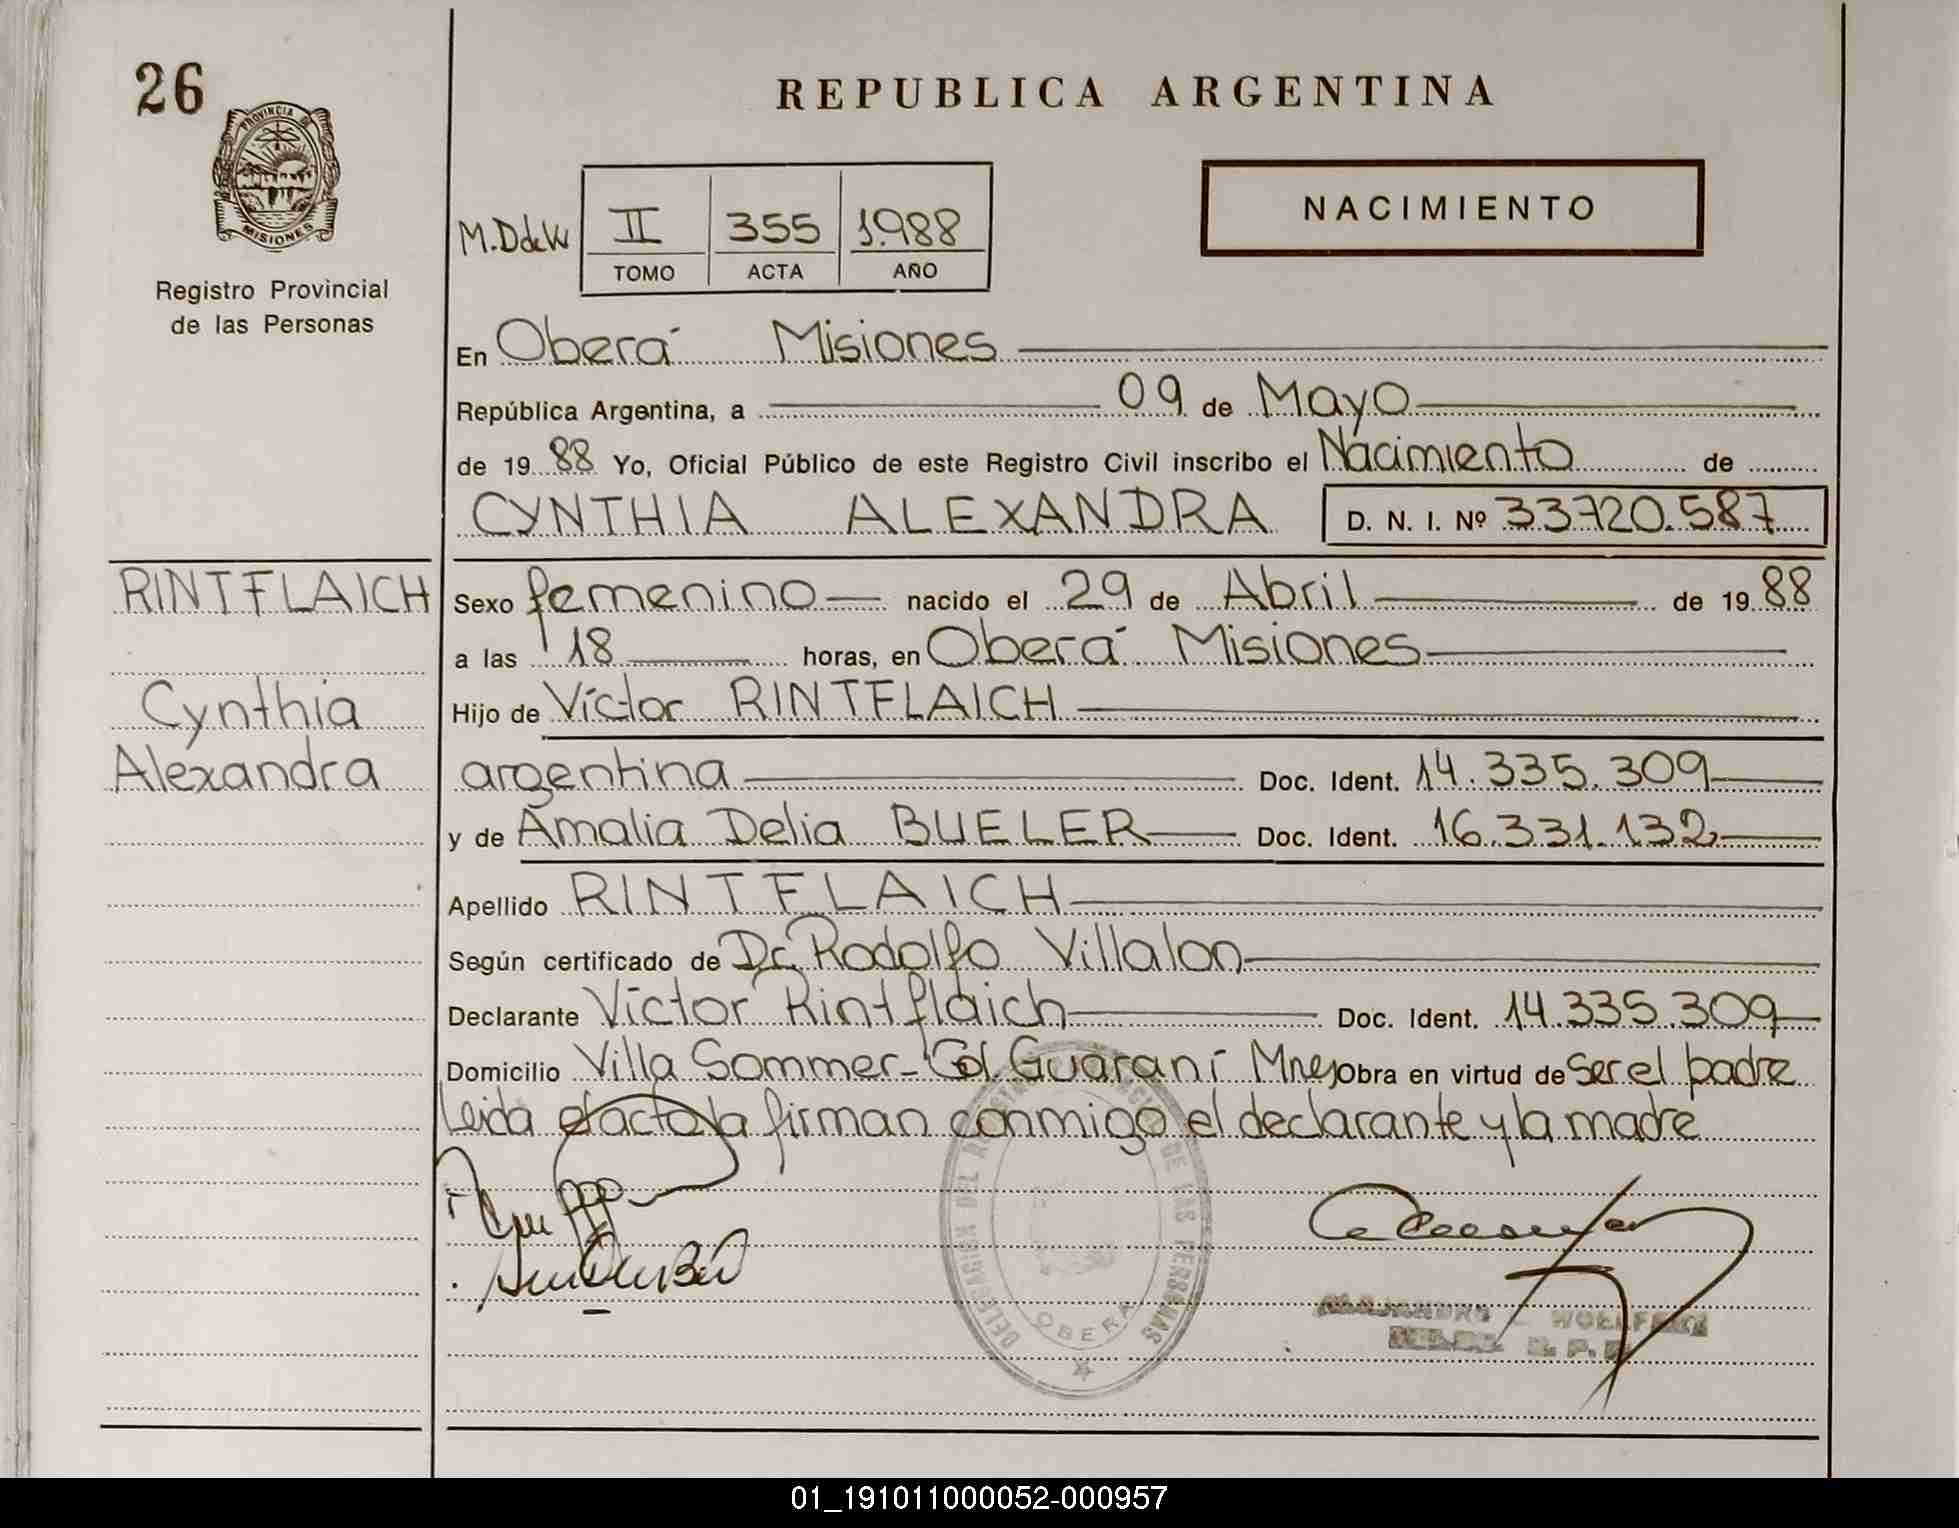 26
PROVINCIA DE
MISIONES
Registro Provincial
de las Personas
REPUBLICA ARGENTINA
M.DdeW
II 355 1.988
TOMO ACTA AÑO
NACIMIENTO
En Oberá Misiones
República Argentina, a 09 de Mayo
de 19 88 Yo, Oficial Público de este Registro Civil inscribo el Nacimiento de
CYNTHIA ALEXANDRA D. N. I. Nº 33720.587
RINTFLAICH
Cynthia
Alexandra
Sexo femenino nacido el 29 de Abril de 19 88
a las 18 horas, en Oberá Misiones
Hijo de Víctor RINTFLAICH
argentina Doc. Ident. 14.335.309
y de Amalia Delia BUELER Doc. Ident. 16.331.132
Apellido RINTFLAICH
Según certificado de Dr. Rodolfo Villalon
Declarante Víctor Rintflaich Doc. Ident. 14.335.309
Domicilio Villa Sommer-Col. Guaraní Mnes Obra en virtud de ser el padre
Leida el acta la firman conmigo el declarante y la madre
DELEGACION DEL DE LAS PERSONAS
OBERA
01_191011000052-000957